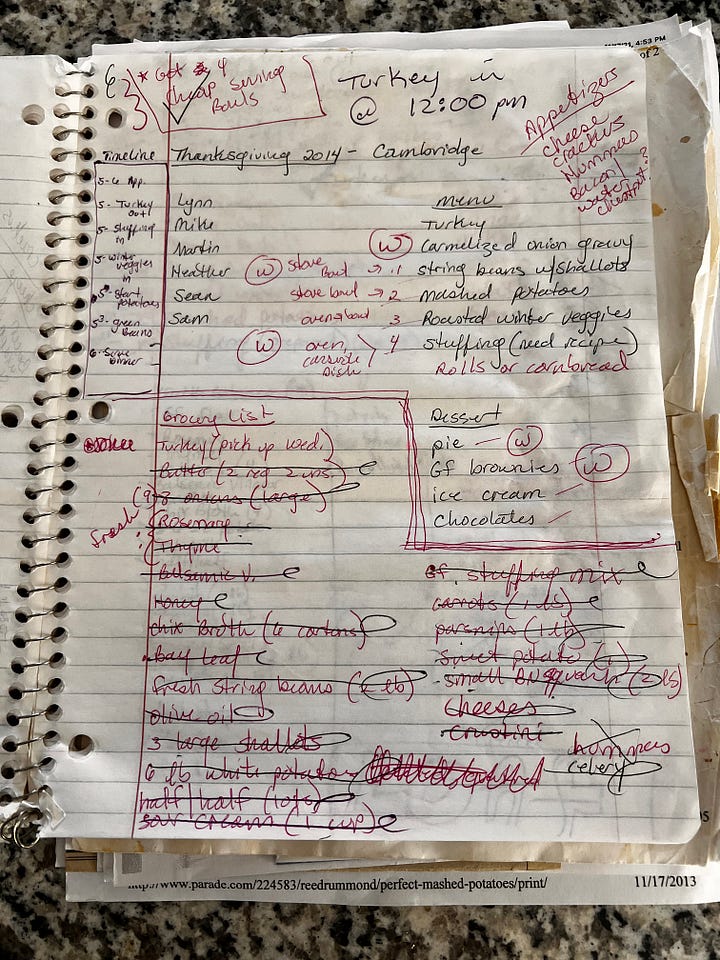 * Get 4
cheap serving
bowls
Turkey in
@ 12:00 pm
11/17/21, 4:53 PM
of 2
Appetizers
Cheese
Crackers
Hummus
Bacon/
water
chestnut?
Timeline
5-6 App.
5 - Turkey
out
5 - stuffing
in
5 - winter
veggies
in
start
potatoes
green
beans
6 - Serve
dinner
Thanksgiving 2014 - Cambridge
Lynn
Mike
Martin
Heather
Sean
Sam
menu
Turkey
(W) Carmelized onion gravy
(W) stove bowl → 1 string beans w/shallots
stove bowl → 2 mashed potatoes
oven bowl 3 Roasted winter veggies
(W) oven, casserole dish 4 stuffing (need recipe)
Rolls or cornbread
Grocery List
Turkey (pick up wed.)
Butter (2 reg 2 ups.)
(9) 8 onions (large)
fresh
Rosemary
Thyme
Balsamic V.
Honey
chix Broth (6 cartons)
Bay leaf
fresh string beans (2 lb)
olive oil
3 large shallots
6 lb white potatoes
half/half
sour cream (1 cup)
Dessert
pie — (W)
GF brownies — (W)
ice cream —
Chocolates —
GF. stuffing mix
carrots (1 lb)
parsnips (1 lb)
sweet potato (1)
small BN squash (2 lb)
Cheeses
Crostini
hummus
celery
http://www.parade.com/224583/reedrummond/perfect-mashed-potatoes/print/
11/17/2013